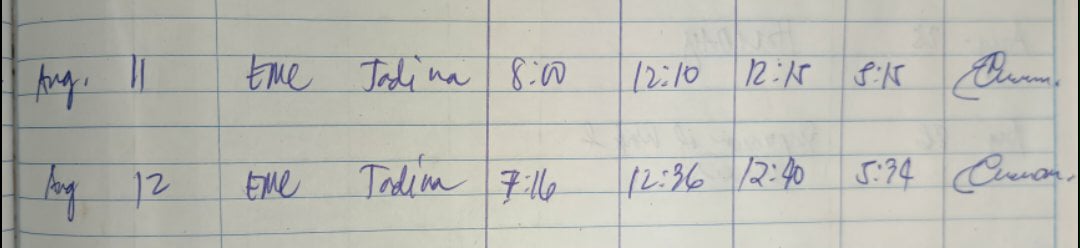 Aug. 11 EME Jadina 8:00 12:10 12:15 5:15
Aug 12 EME Jadina 7:16 12:36 12:40 5:34